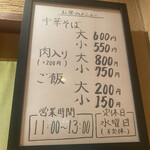 お昼のメニュー
中華そば
大 600円
小 550円
肉入り 大 800円
(+200円) 小 750円
ご飯 大 200円
小 150円
営業時間
11:00~13:00
定休日
水曜日